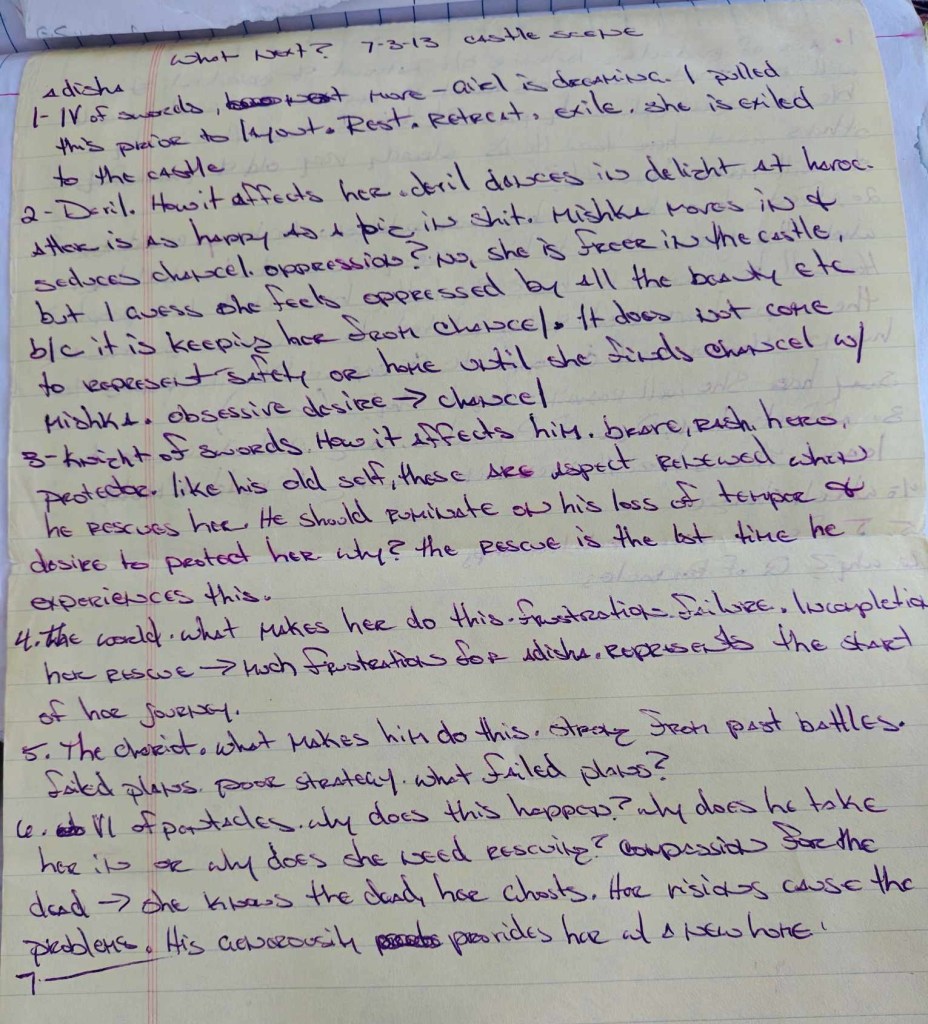 What Next? 7-3-13 castle scene
Adisha
1- IV of swords, more - girl is dreaming. I pulled
this prior to layout. Rest. Retreat, exile. she is exiled
to the castle
2- Devil. How it affects her. devil dances in delight at havoc.
Attor is as happy as a pig in shit. Mishka moves in &
seduces chancel. oppression? No, she is freer in the castle,
but I guess she feels oppressed by all the beauty etc
b/c it is keeping her from chancel. It does not come
to represent safety or home until she finds chancel w/
Mishka. obsessive desire → chancel
3- Knight of swords. How it affects him. brave, rash. hero,
protector. like his old self, these are aspect renewed when
he rescues her. He should ruminate on his loss of temper &
desire to protect her why? the rescue is the 1st time he
experiences this.
4. the world. what makes her do this. frustration. failure. Incompletion
her rescue → much frustration for Adisha. represents the start
of her journey.
5. The chariot. what makes him do this. strong from past battles.
failed plans. poor strategy. what failed plans?
6. VI of pentacles. why does this happen? why does he take
her in or why does she need rescuing? compassion for the
dead → she knows the dead, her ghosts. Her visions cause the
problems. His generousity provides her w/ a new home.
7-